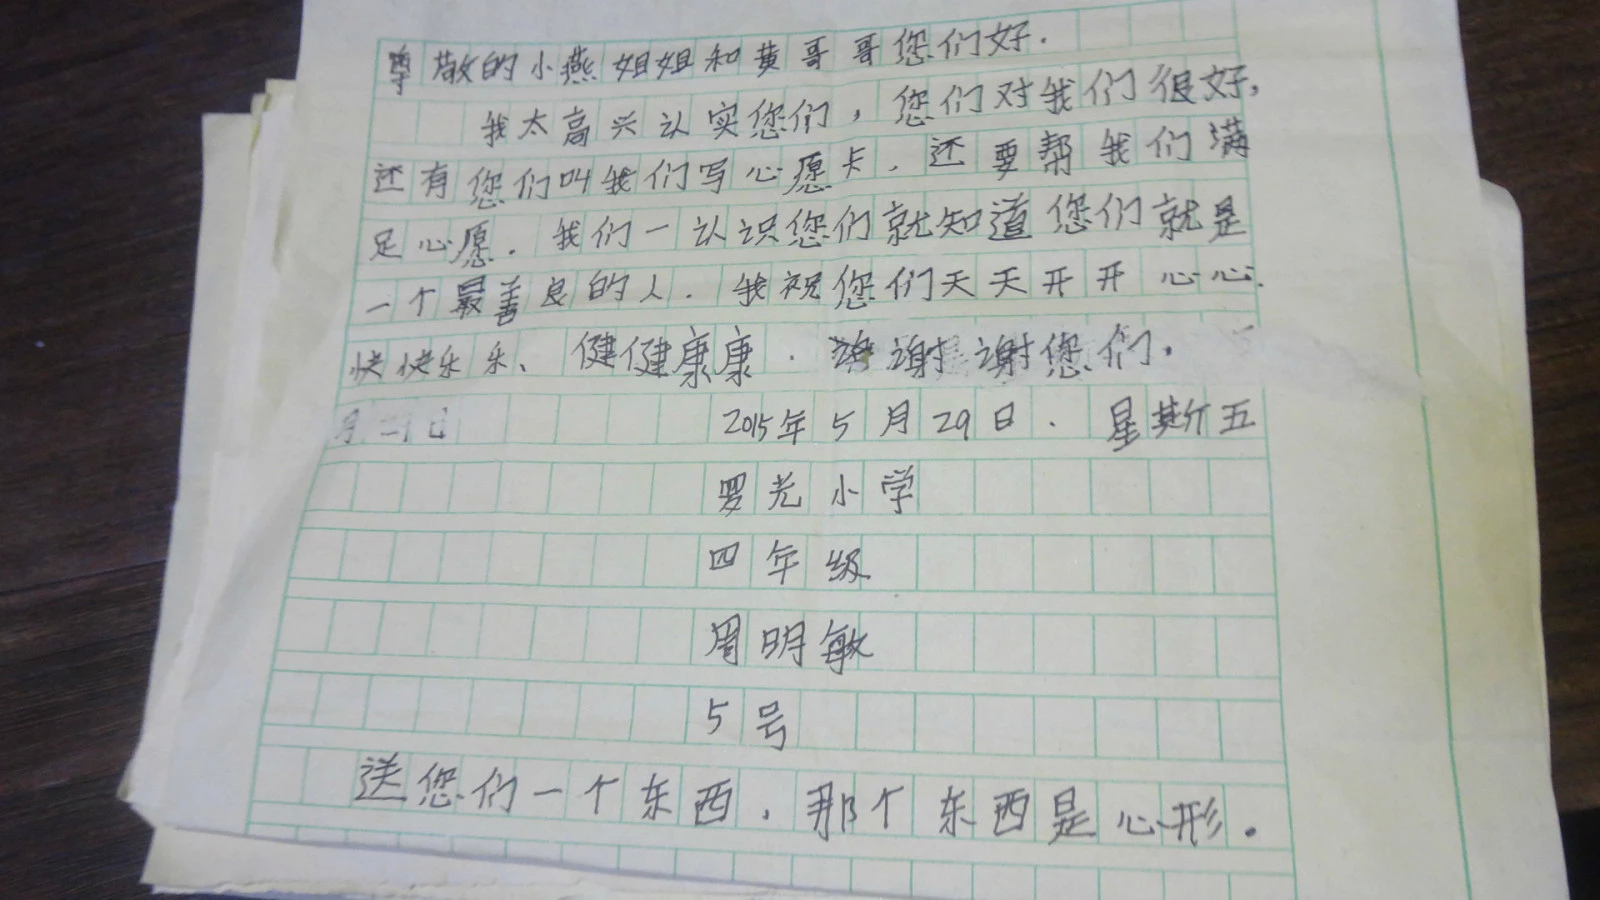 尊敬的小燕姐姐和黄哥哥您们好.
我太高兴认实您们，您们对我们很好，
还有您们叫我们写心愿卡.还要帮我们满
足心愿.我们一认识您们就知道您们就是
一个最善良的人.我祝您们天天开开心心.
快快乐乐、健健康康.谢谢您们.
2015年5月29日.星斯五
罗光小学
四年级
周明敏
5号
送您们一个东西，那个东西是心形.